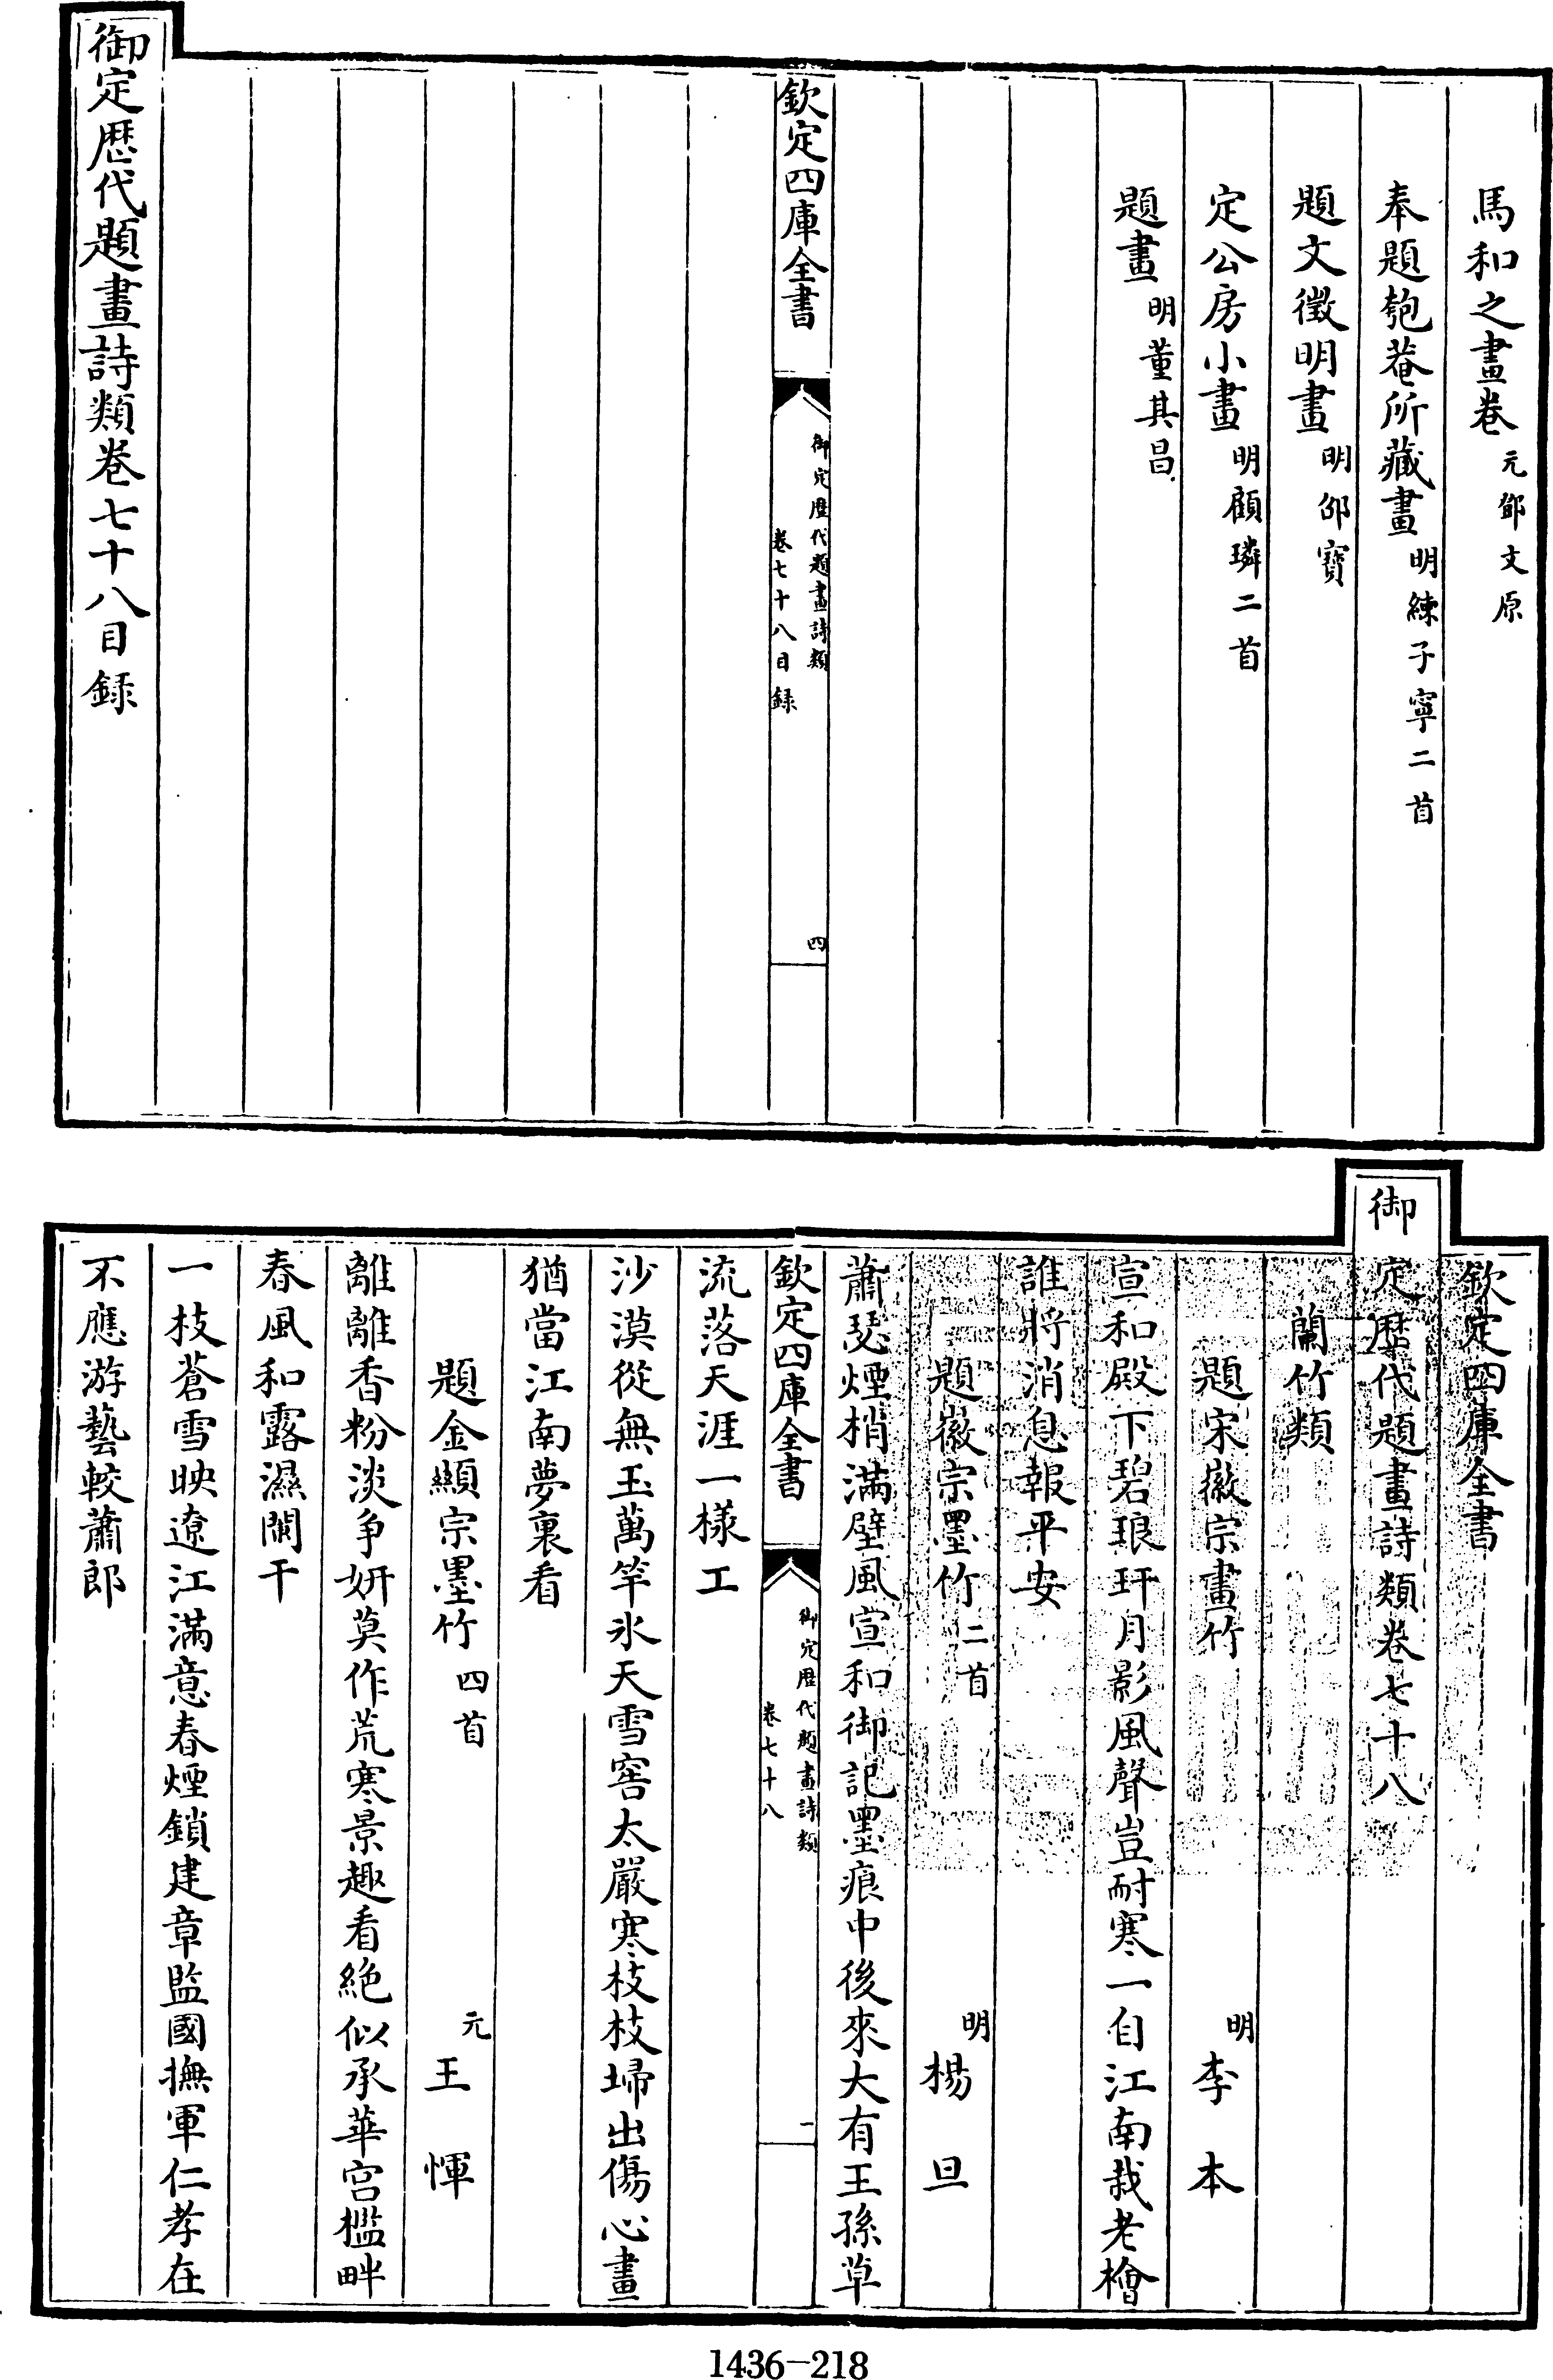 馬和之畫卷元鄧文原
奉題匏菴所藏畫明練子寧二首
題文徵明畫明邵寶
定公房小畫明顧璘二首
題畫明董其昌
欽定四庫全書
御定歷代題畫詩類
卷七十八目録
四
御定歷代題畫詩類卷七十八目録
欽定四庫全書
御定歷代題畫詩類卷七十八
蘭竹類
題宋徽宗畫竹 明李本
宣和殿下碧琅玕月影風聲豈耐寒一自江南栽老檜
誰將消息報平安
題徽宗墨竹二首 明楊旦
蕭瑟煙梢滿壁風宣和御記墨痕中後來大有王孫草
流落天涯一樣工
沙漠從無玉萬竿氷天雪窖太嚴寒枝枝埽出傷心畫
猶當江南夢裏看
題金顯宗墨竹四首 元王惲
離離香粉淡爭妍莫作荒寒景趣看絶似承華宮檻畔
春風和露濕闌干
一枝蒼雪映遼江滿意春煙鎖建章監國撫軍仁孝在
不應游藝較蕭郎
欽定四庫全書
御定歷代題畫詩類
卷七十八
一
1436-218